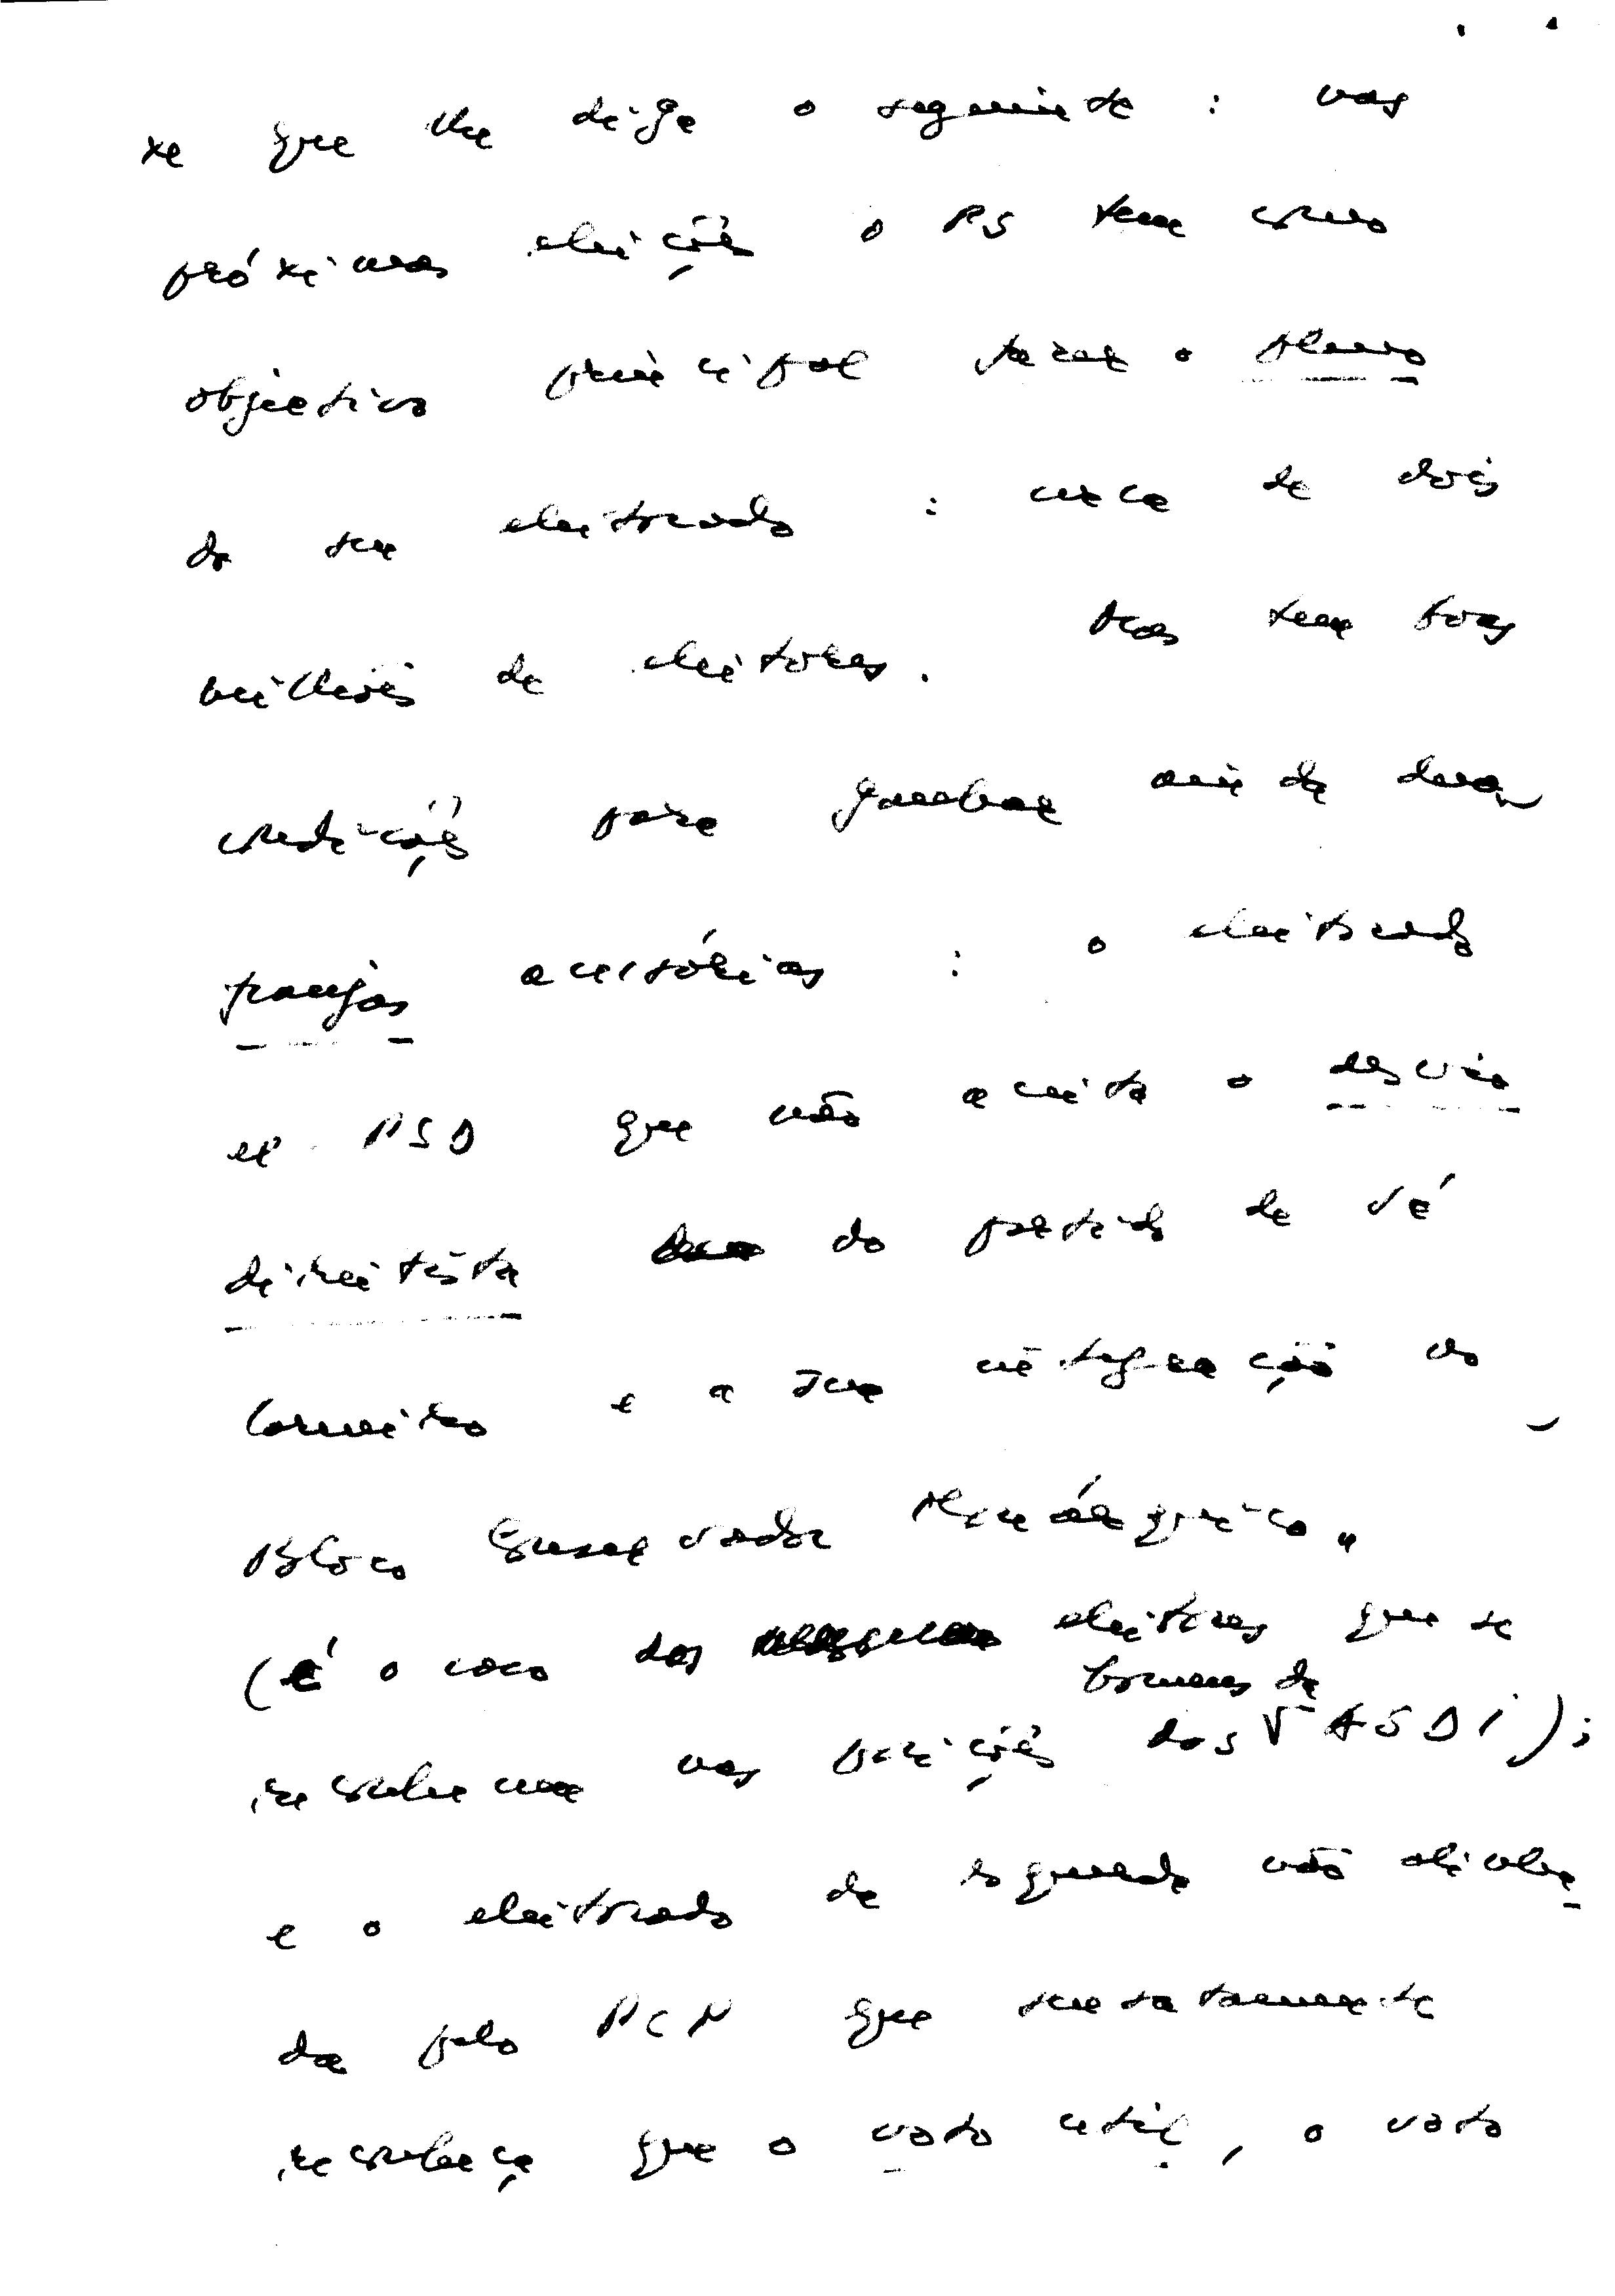 xe que lhe diga o seguinte: nas
próximas eleições o PS tem como
objectivo principal ter o pleno
do seu eleitorado: cerca de dois
milhões de eleitores. Mas tem boas
condições para ganhar ainda duas
franjas acessórias: o eleitorado
ex-PSD que não aceita o desvio
direitista do partido de Sá
Carneiro e a sua integração no
Bloco Conservador Monárquico"
(é o caso dos eleitores que se
homens da
reconhecem nas posições dos ASDI);
e o eleitorado de esquerda não alinha
da pelo PCP que sensatamente
reconheça que o voto útil, o voto